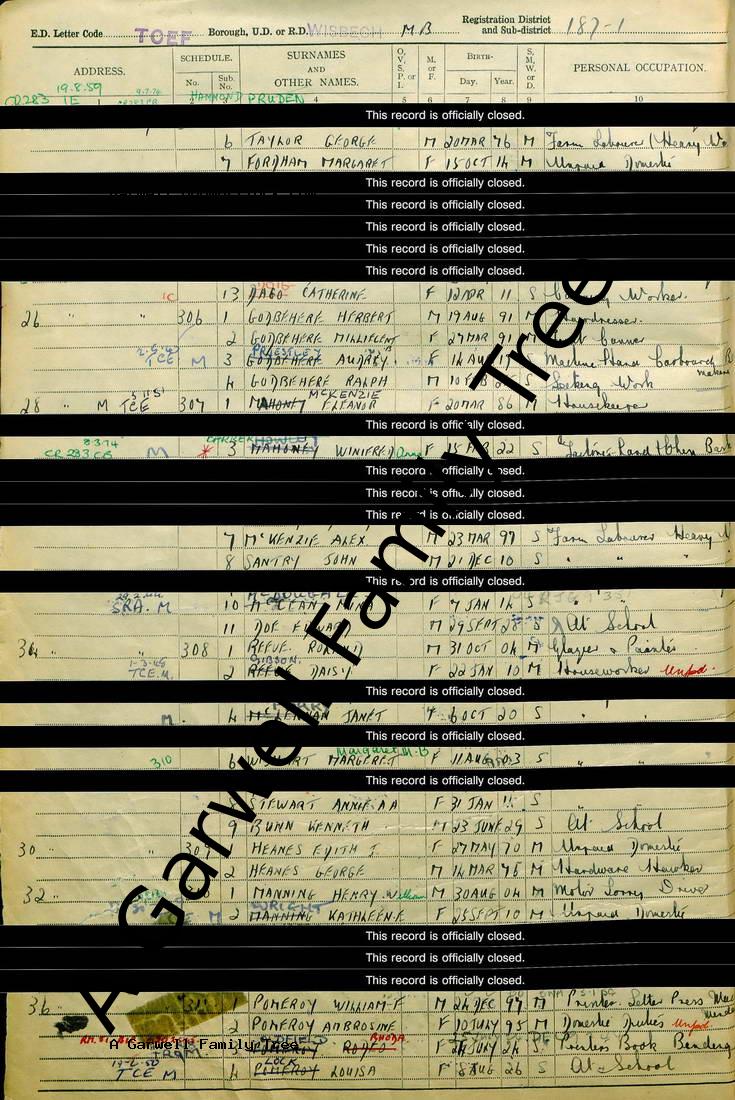 E.D. Letter Code TOEF Borough, U.D. or R.D. WISBECH M B Registration District and Sub-district 187-1
ADDRESS. SCHEDULE. SURNAMES AND OTHER NAMES. O, V, S, P. or I. M. or F. BIRTH- S, M, W, or D. PERSONAL OCCUPATION.
No. Sub. No. Day. Year.
2 4 5 6 7 8 9 10
19.8.59 HAMMOND PRUDEN
CD283 IE
This record is officially closed.
6 TAYLOR GEORGE M 20 MAR 76 M Farm Labourer (Heavy Wo
7 FORDHAM MARGARET F 15 OCT 14 M Unpaid Domestic
This record is officially closed.
This record is officially closed.
This record is officially closed.
This record is officially closed.
This record is officially closed.
13 DAGO CATHERINE F 12 APR 11 S Worker.
26 " " 306 1 GODBEHERE HERBERT M 19 AUG 91 M Hairdresser.
2 GODBEHERE MILLIFCENT F 27 MAR 91 M Canner
TCE M 3 GODBEHERE PRIESTLEY AUDREY F 14 AUG S Machine Hand Carboard B
makers
4 GODBEHERE RALPH M 10 FEB S Seeking Work
28 " M TCE 307 1 MAHONEY McKENZIE ELEANOR F 20 MAR 86 M Housekeeper
This record is officially closed.
8.3.74 CR 283 CB M 3 MAHONEY WINIFRED F 15 MAR 22 S
This record is officially closed.
This record is officially closed.
This record is officially closed.
7 McKENZIE ALEX M 23 MAR 97 S Farm Labourer Heavy
8 SANTRY JOHN M 21 DEC 10 S " " "
This record is officially closed.
SRA. M 10 McLEAN McDOUGALL NINA F 7 JAN 14 S
11 DOE EDWARD M 29 SEPT 28 S At School
34 " " 308 1 REEVE RONALD M 31 OCT 04 M Glazier & Painter
1-3-48 TCE. M. 2 REEVE GIBSON. DAISY F 22 JAN 10 M Houseworker Unpd.
This record is officially closed.
M. 4 McLENNAN JANET F 6 OCT 20 S " "
This record is officially closed.
310 6 MARGERET Margaret. M. B F 11 AUG 03 S "
This record is officially closed.
8 STEWART ANNIE AA F 31 JAN 11 S "
9 BUNN KENNETH M 23 JUNE 29 S At School
30 " 309 1 HEANES EDITH J F 27 MAY 70 M Unpaid Domestic
2 HEANES GEORGE M 14 MAR 75 M Hardware Hawker
32 " 1 MANNING HENRY William M 30 AUG 04 M Motor Lorry Driver
M 2 MANNING WRIGHT KATHLEEN. E F 25 SEPT 10 M Unpaid Domestic
This record is officially closed.
This record is officially closed.
This record is officially closed.
36 " 311 1 POMEROY WILLIAM F M 24 DEC 97 M Printer. Letter Press
2 POMEROY AMBROSINE F 10 JULY 95 M Domestic Duties Unpd.
3 POMEROY RHODA F 24 JULY 24 S Printers Book Binding
19-6-50 TCE M 4 POMEROY LOCK LOUISA F 8 AUG 26 S At School
A Garwell Family Tree
A Garwell Family Tree